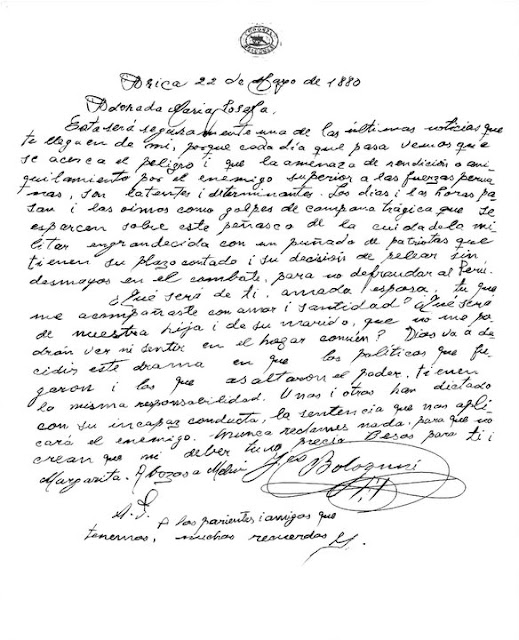 Arica 22 de Mayo de 1880
Adorada María Josefa,
Esta será seguramente una de las últimas noticias que
te lleguen de mi, porque cada día que pasa vemos que
se acerca el peligro i que la amenaza de rendición o ani-
quilamiento por el enemigo superior a las fuerzas perua-
nas, son latentes i determinantes. Los dias i las horas pa-
san i las oimos como golpes de campana trágica que se
esparcen sobre este peñasco de la cuidadela mi-
litar engrandecida con un puñado de patriotas que
tienen su plazo contado i su decisión de pelear sin
desmayos en el combate, para no defraudar al Perú.
¿Qué será de ti, amada esposa, tu que
me acompañaste con amor i santidad? ¿Qué será
de nuestra hija i de su marido, que no me po-
drán ver ni sentir en el hogar común? Dios va a de-
cidir este drama en que los políticos que fu-
garon i los que asaltaron el poder, tienen
la misma responsabilidad. Unos i otros han dictado
con su incapaz conducta, la sentencia que nos apli-
cará el enemigo. Nunca reclames nada, para que no
crean que mi deber tuvo precio. Besos para ti i
Margarita. Abrazos a Melvi
Bolognesi
A los parientes i amigos que
tenemos, muchos recuerdos